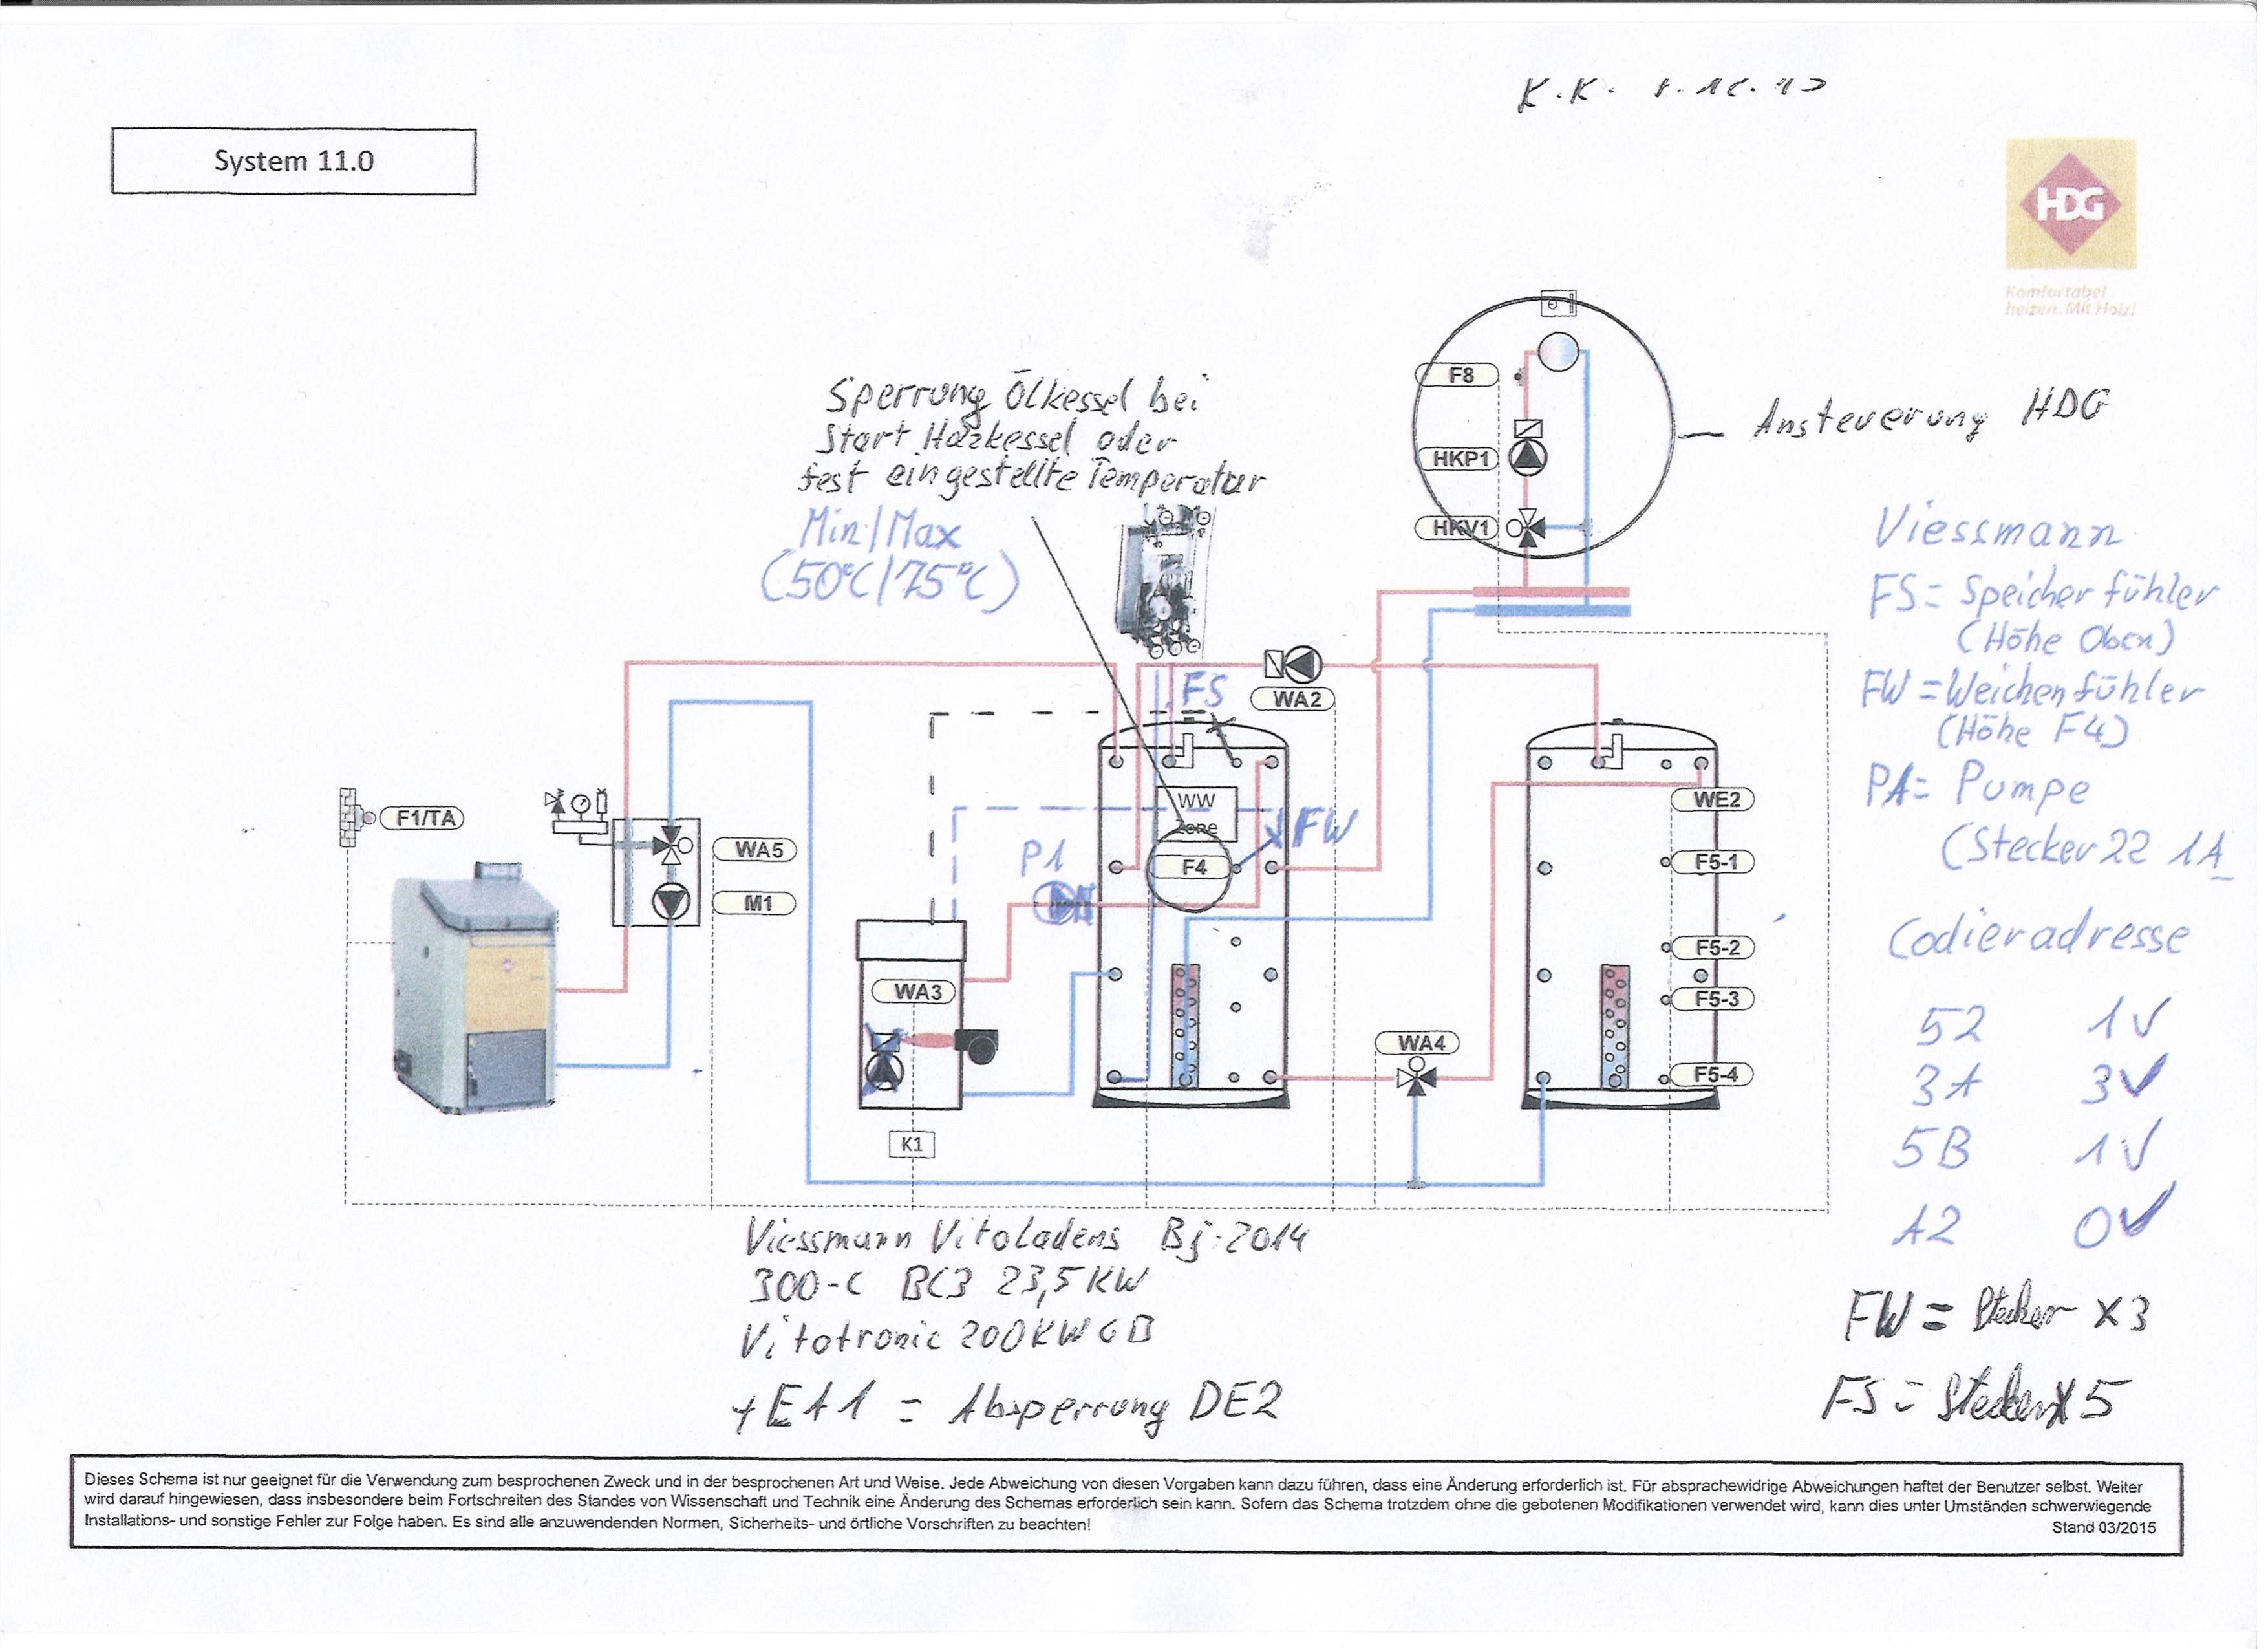 K.K.
System 11.0
HDG
Komfortabel
heizen. Mit Holz!
Sperrung Ölkessel bei
Start Holzkessel oder
fest eingestellte Temperatur
Min/Max
(50°C/75°C)
F8
HKP1
HKV1
Ansteuerung HDG
Viessmann
FS= Speicherfühler
(Höhe Oben)
FW=Weichenfühler
(Höhe F4)
PA= Pumpe
(Stecker 22 1A
Codieradresse
52 1✓
3A 3✓
5B 1✓
A2 0✓
FW = Stecker X3
FS = Stecker X5
FS
WA2
F1/TA
WA5
M1
P1
WW
Zone
FW
F4
WE2
F5-1
F5-2
F5-3
F5-4
WA3
WA4
K1
Viessmann Vitoladens Bj. 2014
300-C BC3 23,5 KW
Vitotronic 200 KW6B
+EA1 = Absperrung DE2
Dieses Schema ist nur geeignet für die Verwendung zum besprochenen Zweck und in der besprochenen Art und Weise. Jede Abweichung von diesen Vorgaben kann dazu führen, dass eine Änderung erforderlich ist. Für absprachewidrige Abweichungen haftet der Benutzer selbst. Weiter
wird darauf hingewiesen, dass insbesondere beim Fortschreiten des Standes von Wissenschaft und Technik eine Änderung des Schemas erforderlich sein kann. Sofern das Schema trotzdem ohne die gebotenen Modifikationen verwendet wird, kann dies unter Umständen schwerwiegende
Installations- und sonstige Fehler zur Folge haben. Es sind alle anzuwendenden Normen, Sicherheits- und örtliche Vorschriften zu beachten!
Stand 03/2015